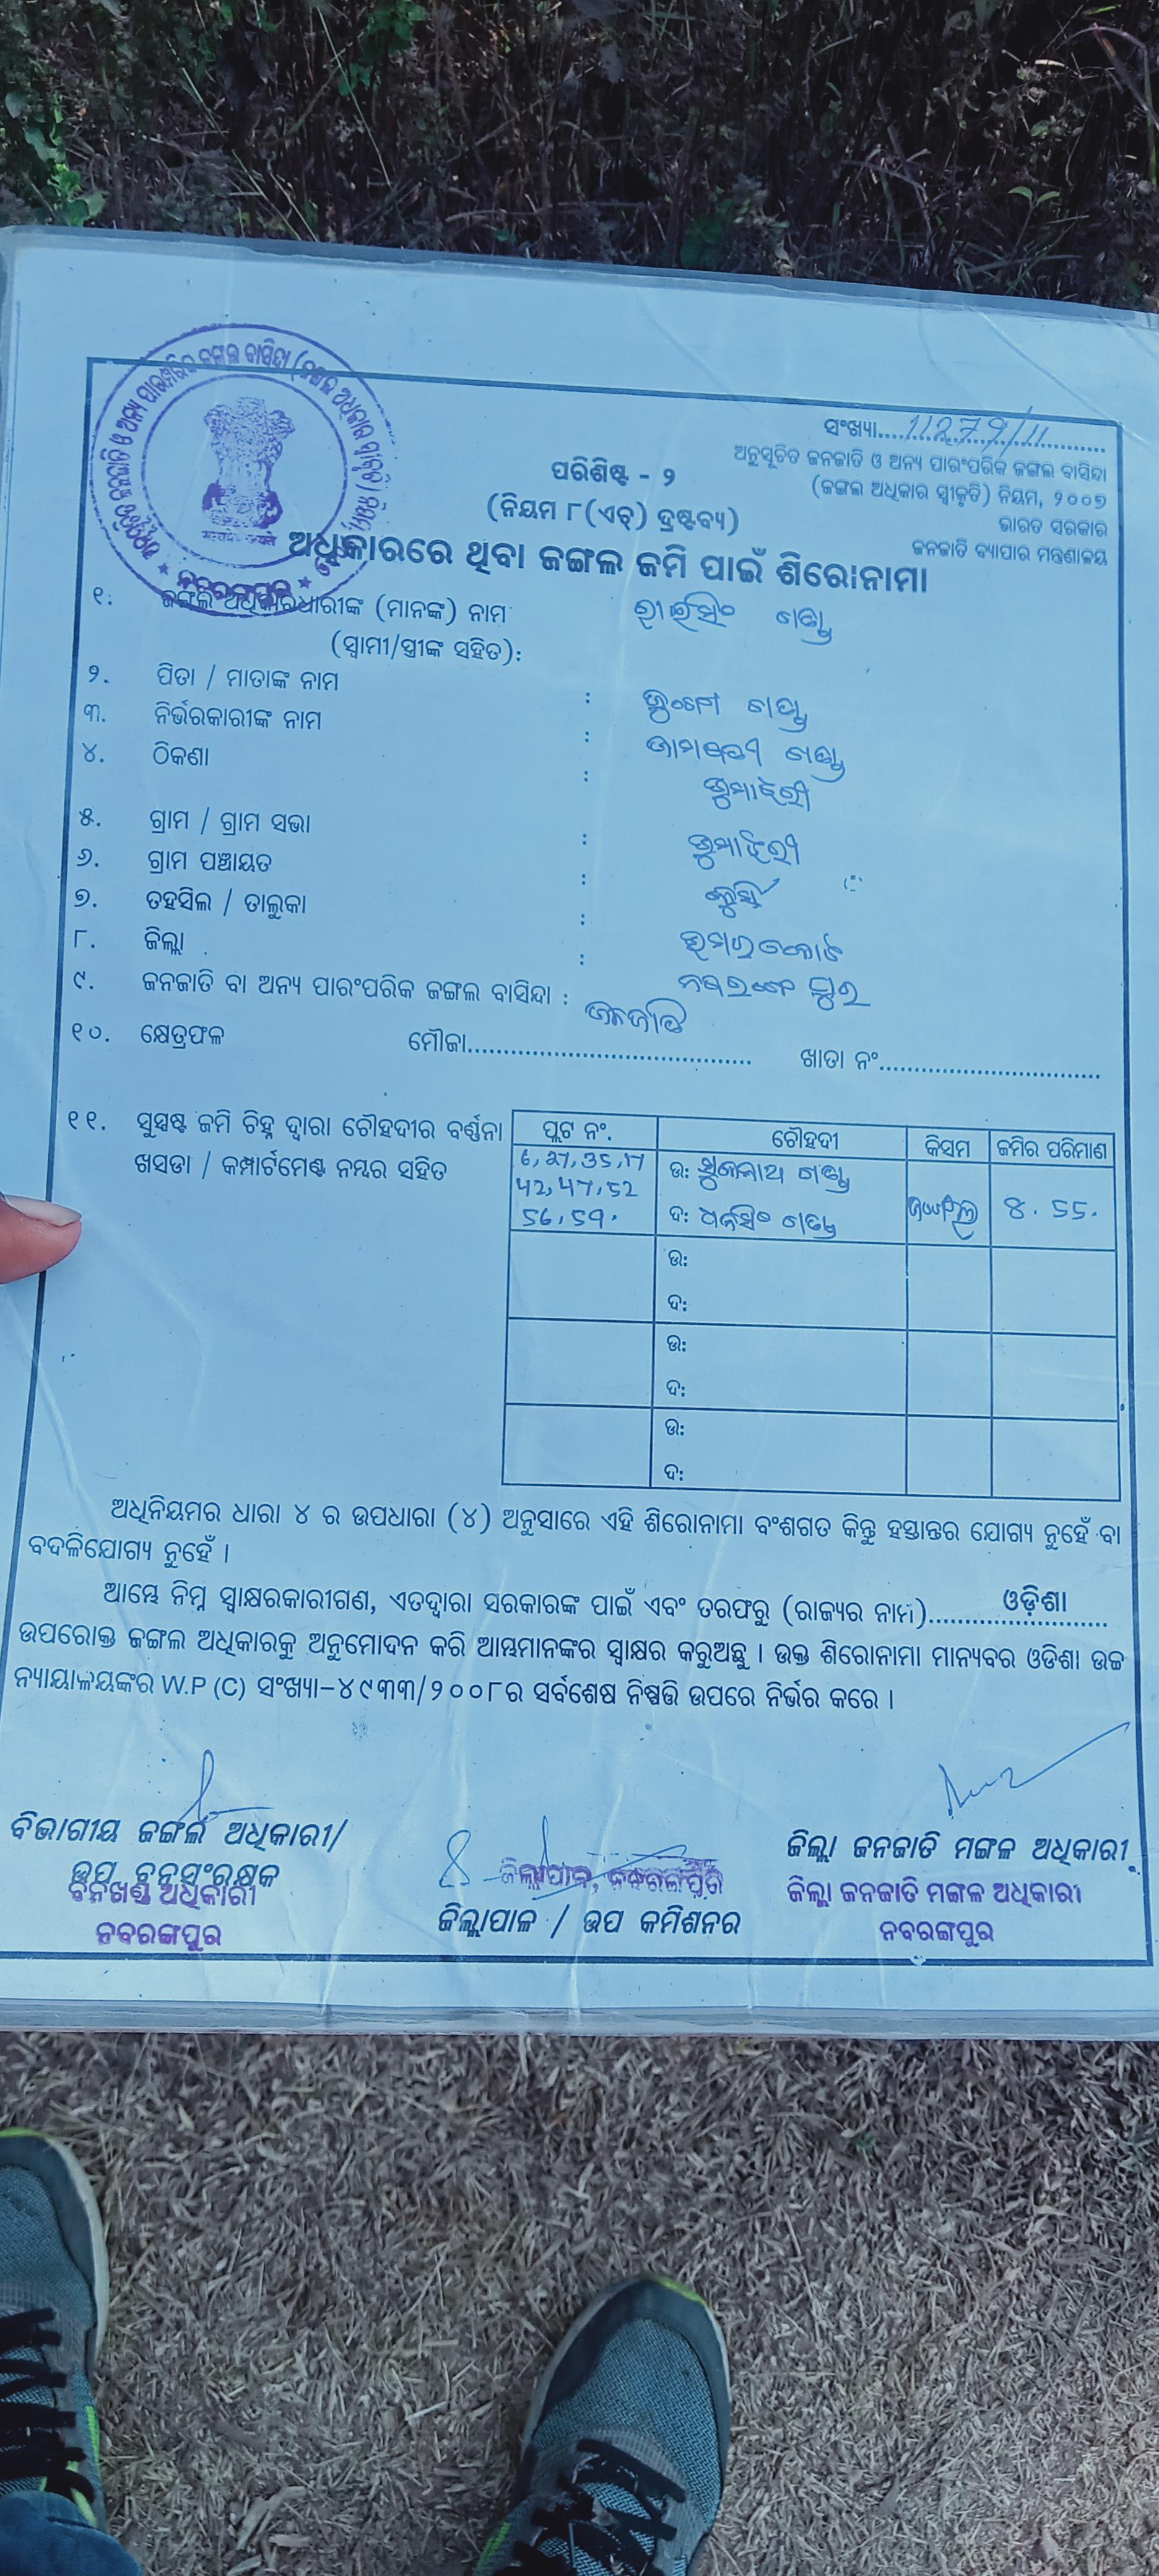 ସଂଖ୍ୟା....11279/11....
ଅନୁସୂଚିତ ଜନଜାତି ଓ ଅନ୍ୟ ପାରଂପରିକ ଜଙ୍ଗଲ ବାସିନ୍ଦା
(ଜଙ୍ଗଲ ଅଧିକାର ସ୍ୱୀକୃତି) ନିୟମ, ୨୦୦୭
ଭାରତ ସରକାର
ଜନଜାତି ବ୍ୟାପାର ମନ୍ତ୍ରଣାଳୟ
ପରିଶିଷ୍ଟ - ୨
(ନିୟମ ୮(ଏଚ୍) ଦ୍ରଷ୍ଟବ୍ୟ)
ଅଧିକାରରେ ଥିବା ଜଙ୍ଗଲ ଜମି ପାଇଁ ଶିରୋନାମା
୧. ଜଙ୍ଗଲ ଅଧିକାରଧାରୀଙ୍କ (ମାନଙ୍କ) ନାମ ରାଇସିଂ ଗଣ୍ଡ
(ସ୍ୱାମୀ/ସ୍ତ୍ରୀଙ୍କ ସହିତ):
୨. ପିତା / ମାତାଙ୍କ ନାମ : ଗଣ୍ଡ
୩. ନିର୍ଭରକାରୀଙ୍କ ନାମ : ଗଣ୍ଡ
୪. ଠିକଣା : ଡୁମାଝିରୀ
୫. ଗ୍ରାମ / ଗ୍ରାମ ସଭା : ଡୁମାଝିରୀ
୬. ଗ୍ରାମ ପଞ୍ଚାୟତ :
୭. ତହସିଲ / ତାଲୁକା : ଉମରକୋଟ
୮. ଜିଲ୍ଲା : ନବରଙ୍ଗପୁର
୯. ଜନଜାତି ବା ଅନ୍ୟ ପାରଂପରିକ ଜଙ୍ଗଲ ବାସିନ୍ଦା : ଜନଜାତି
୧୦. କ୍ଷେତ୍ରଫଳ ମୌଜା.................... ଖାତା ନଂ....................
୧୧. ସୁସ୍ପଷ୍ଟ ଜମି ଚିହ୍ନ ଦ୍ୱାରା ଚୌହଦୀର ବର୍ଣ୍ଣନା
ଖସଡା / କମ୍ପାର୍ଟମେଣ୍ଟ ନମ୍ବର ସହିତ
ପ୍ଲଟ ନଂ. ଚୌହଦୀ କିସମ ଜମିର ପରିମାଣ
6, 27, 35, 17
42, 47, 52
56, 59.
ଉ: ଗଣ୍ଡ
ଦ: ଧନସିଂ ଗଣ୍ଡ
ଜଙ୍ଗଲ
୪. 55.
ଉ:
ଦ:
ଉ:
ଦ:
ଉ:
ଦ:
ଅଧିନିୟମର ଧାରା ୪ ର ଉପଧାରା (୪) ଅନୁସାରେ ଏହି ଶିରୋନାମା ବଂଶଗତ କିନ୍ତୁ ହସ୍ତାନ୍ତର ଯୋଗ୍ୟ ନୁହେଁ ବା
ବଦଳିଯୋଗ୍ୟ ନୁହେଁ ।
ଆମ୍ଭେ ନିମ୍ନ ସ୍ୱାକ୍ଷରକାରୀଗଣ, ଏତଦ୍ୱାରା ସରକାରଙ୍କ ପାଇଁ ଏବଂ ତରଫରୁ (ରାଜ୍ୟର ନାମ)....ଓଡ଼ିଶା....
ଉପରୋକ୍ତ ଜଙ୍ଗଲ ଅଧିକାରକୁ ଅନୁମୋଦନ କରି ଆମ୍ଭମାନଙ୍କର ସ୍ୱାକ୍ଷର କରୁଅଛୁ । ଉକ୍ତ ଶିରୋନାମା ମାନ୍ୟବର ଓଡିଶା ଉଚ୍ଚ
ନ୍ୟାୟାଳୟଙ୍କର W.P (C) ସଂଖ୍ୟା-୪୯୩୩/୨୦୦୮ର ସର୍ବଶେଷ ନିଷ୍ପତ୍ତି ଉପରେ ନିର୍ଭର କରେ ।
ବିଭାଗୀୟ ଜଙ୍ଗଲ ଅଧିକାରୀ/
ଉପ ବନସଂରକ୍ଷକ
ବନଖଣ୍ଡ ଅଧିକାରୀ
ନବରଙ୍ଗପୁର
ଜିଲ୍ଲାପାଳ, ନବରଙ୍ଗପୁର
ଜିଲ୍ଲାପାଳ / ଉପ କମିଶନର
ଜିଲ୍ଲା ଜନଜାତି ମଙ୍ଗଳ ଅଧିକାରୀ
ଜିଲ୍ଲା ଜନଜାତି ମଙ୍ଗଳ ଅଧିକାରୀ
ନବରଙ୍ଗପୁର